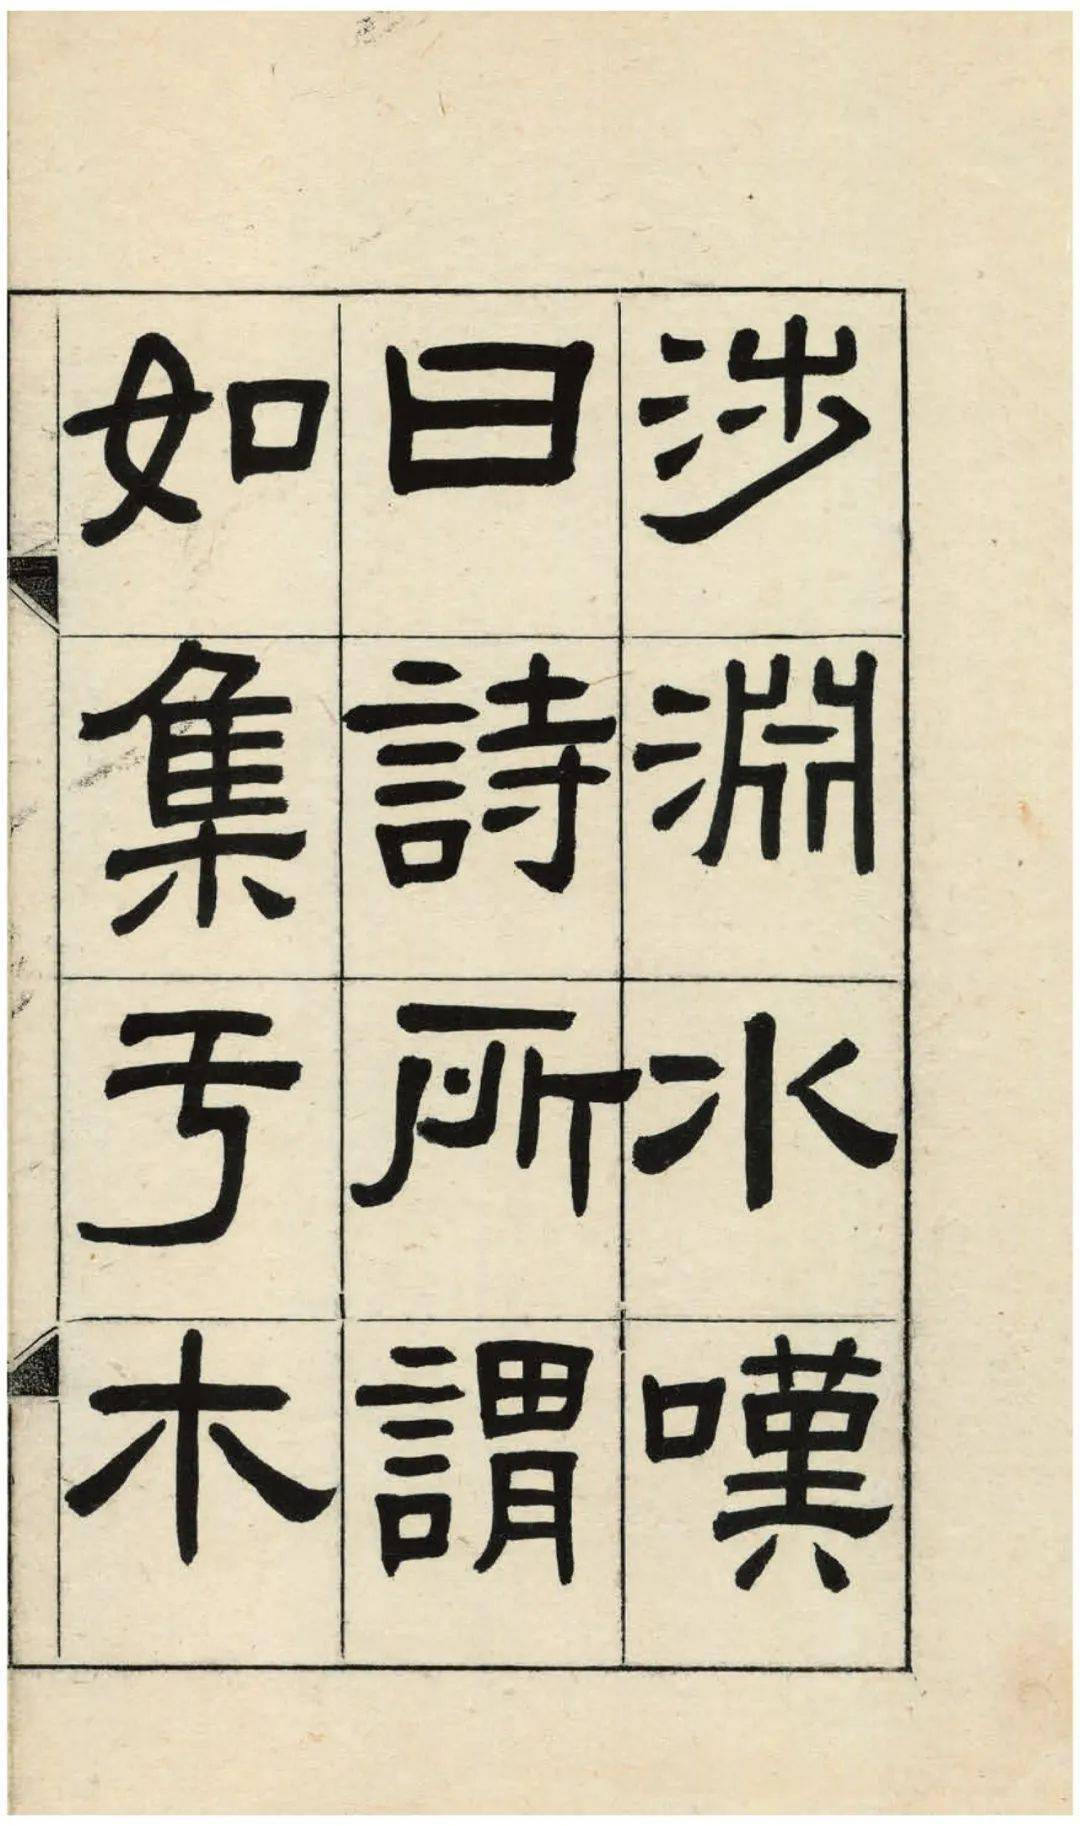 涉淵水嘆
曰詩所謂
如集于木